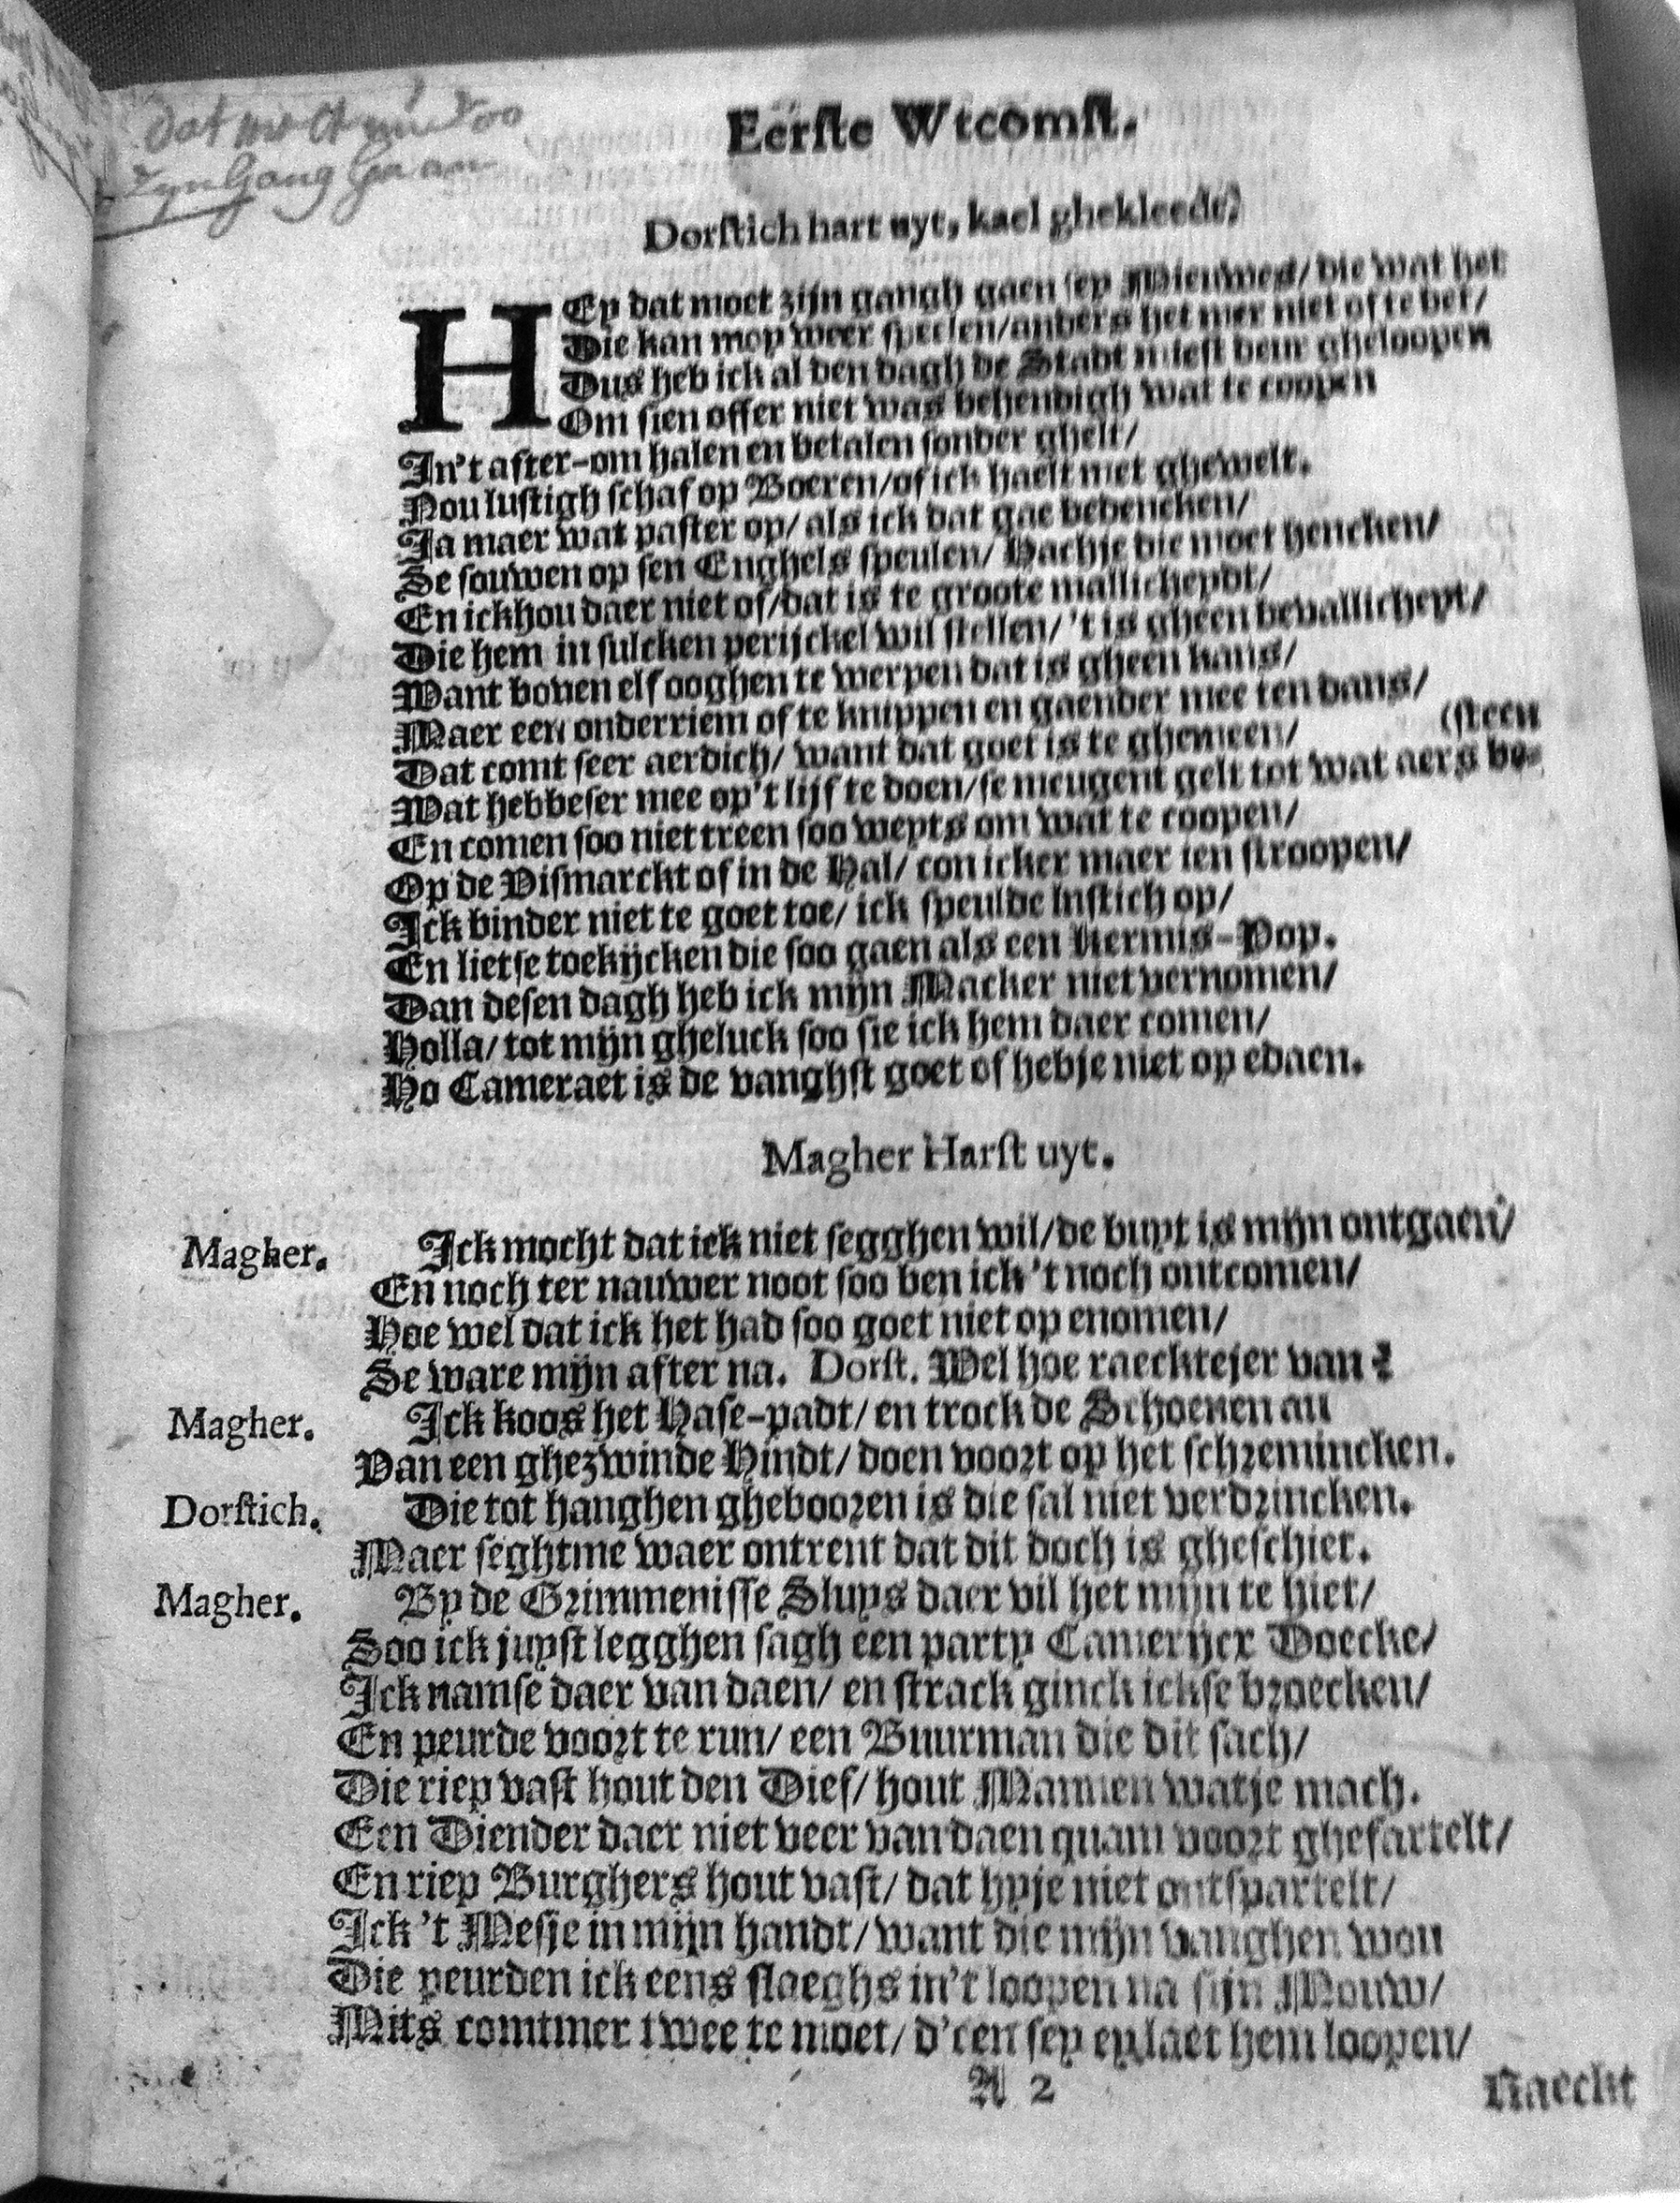 dat moet
zyn Gang Gaan
Eerste Wtcomst.
Dorstich hart uyt, kael ghekleedt,
HEy dat moet zijn gangh gaen sey Meeuwes/ die wat het
Die kan moy weer speelen/anders het mer niet of te bet/
Dus heb ick al den dagh de Stadt miest deur gheloopen
Om sien offer niet was behendigh wat te coopen
In't after-om halen en betalen sonder ghelt/
Nou lustigh schaf op Boeren/of ick haelt met ghewelt.
Ja maer wat paster op/ als ick dat gae bedencken/
Se souwen op sen Enghels speulen/ Hachje die moet hencken/
En ick hou daer niet of/dat is te groote mallicheydt/
Die hem in sulcken perijckel wil stellen/ 't is gheen bevallicheyt/
Want boven elf ooghen te werpen dat is gheen kans/
Maer een onderriem of te knippen en gaender mee ten dans/
Dat comt seer aerdich/ want dat goet is te ghemeen/
(steen
Wat hebbeser mee op't lijf te doen/se meugent gelt tot wat aers be-
En comen soo niet treen soo weyts om wat te coopen/
Op de Vismarckt of in de Hal/ con icker maer ien stroopen/
Ick binder niet te goet toe/ ick speulde lustich op/
En lietse toekijcken die soo gaen als een Kermis-Pop.
Dan desen dagh heb ick mijn Macker niet vernomen/
Holla/ tot mijn gheluck soo sie ick hem daer comen/
Ho Cameraet is de vanghst goet of hebje niet op edaen.
Magher Harst uyt.
Magher. Ick mocht dat ick niet segghen wil/de buyt is mijn ontgaen/
En noch ter nauwer noot soo ben ick't noch ontcomen/
Hoe wel dat ick het had soo goet niet op enomen/
Se ware mijn after na. Dorst. Wel hoe raecktejer van?
Magher. Ick koos het Hase-padt/ en trock de Schoenen an
Van een ghezwinde Hindt/ doen voort op het schremincken.
Dorstich. Die tot hanghen ghebooren is die sal niet verdrincken.
Maer seghtme waer ontrent dat dit doch is gheschiet.
Magher. By de Grimmenisse Sluys daer vil het mijn te hiet/
Soo ick juyst legghen sagh een party Camerijcx Doecke/
Ick namse daer van daen/ en strack ginck ickse broecken/
En peurde voort te run/ een Buurman die dit sach/
Die riep vast hout den Dief/ hout Mannen watje mach.
Een Diender daer niet veer van daen quam voort ghesartelt/
En riep Burghers hout vast/ dat hyje niet ontspartelt/
Ick 't Mesje in mijn handt/ want die mijn vanghen wou
Die peurden ick eens slaeghs in't loopen na sijn Mouw/
Mits comtmer twee te moet/ d'een sey ey laet hem loopen/
A 2
Naeckt